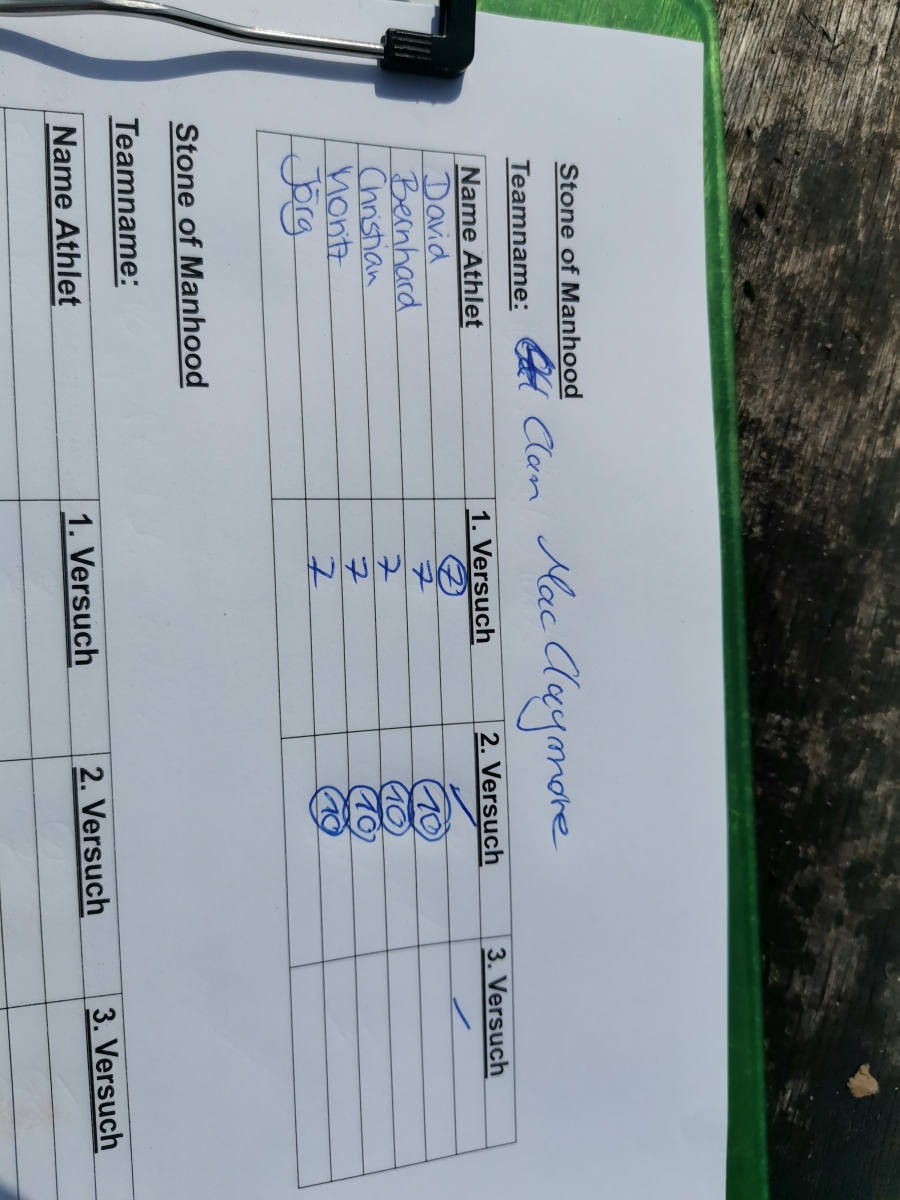 Stone of Manhood
Teamname: Clan Mac Claymore
Name Athlet 1. Versuch 2. Versuch 3. Versuch
David 7 ✓ /
Bernhard 7 10
Christian 7 10
Moritz 7 10
Jörg 7 10
Stone of Manhood
Teamname:
Name Athlet 1. Versuch 2. Versuch 3. Versuch